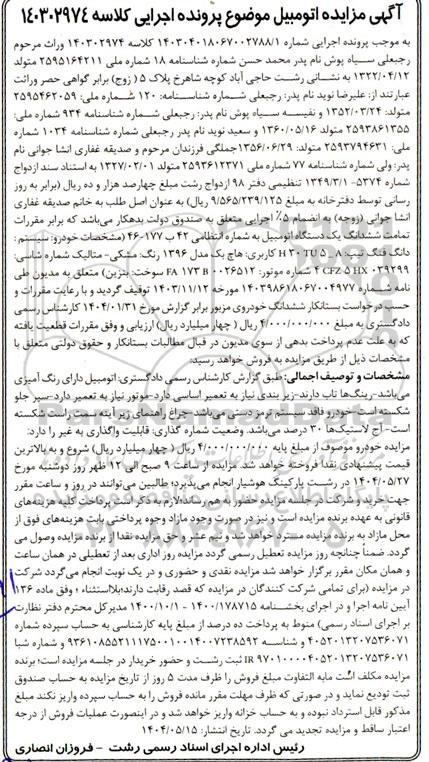 آگهی مزایده اتومبیل موضوع پرونده اجرایی کلاسه ۱۴۰۳۰۲۹۷۴
به موجب پرونده اجرایی شماره ۱۴۰۳۰۴۰۱۸۰۶۷۰۰۲۷۸۸/۱ کلاسه ۱۴۰۳۰۲۹۷۴ وراث مرحوم
رجبعلی سیاه پوش نام پدر محمد حسن شماره شناسنامه ۱۸ شماره ملی ۲۵۹۵۱۶۴۲۱۱ متولد
۱۳۲۲/۰۴/۱۲ به نشانی رشت حاجی آباد کوچه شاهرخ پلاک ۱۵ (زوج) برابر گواهی حصر وراثت
عبارتند از: علیرضا نوید نام پدر: رجبعلی شماره شناسنامه: ۱۲۰ شماره ملی: ۲۵۹۵۴۶۲۰۵۹
متولد: ۱۳۵۲/۰۳/۲۴ و نفیسه سیاه پوش نام پدر: رجبعلی شماره شناسنامه ۹۳۴ شماره ملی:
۲۵۹۳۸۶۱۳۵۵ متولد ۱۳۶۰/۰۵/۱۶ و سعید نوید نام پدر رجبعلی شماره شناسنامه ۱۰۳۴ شماره
ملی: ۲۵۹۳۷۹۴۶۳۱ متولد: ۱۳۵۶/۰۶/۲۹جملگی فرزندان مرحوم و صدیقه غفاری انشا جوانی نام
پدر: ولی شماره شناسنامه ۷۷ شماره ملی ۲۵۹۳۶۱۲۳۷۱ متولد ۱۳۲۷/۰۲/۰۱ به استناد سند ازدواج
شماره ۵۳۷۴- ۱۳۴۹/۳/۱ تنظیمی دفتر ۹۸ ازدواج رشت مبلغ چهارصد هزار و ده ریال (برابر به روز
رسانی توسط دفترخانه به مبلغ ۹/۵۶۵/۲۳۹/۱۲۵ ریال) به عنوان اصل طلب به خانم صدیقه غفاری
انشا جوانی (زوجه) به انضمام ۵٪ اجرایی متعلق به صندوق دولت بدهکار می‌باشد که برابر مقررات
تمامت ششدانگ یک دستگاه اتومبیل به شماره انتظامی ۴۲ ب ۱۷۷-۴۶ (مشخصات خودرو: سیستم:
دانگ فنگ تیپ: H ۳۰ TU ۵_۸ کاربری: هاچ بک مدل ۱۳۹۶ رنگ: مشکی- متالیک شماره شاسی:
۰۳۹۲۹۹ CFZ ۵ HX ۴ شماره موتور: ۰۰۲۶۵۱۲ FA ۱۷۳ B سوخت: بنزین) متعلق به مدیون طی
نامه شماره ۱۴۰۳۹۸۶۱۸۰۶۷۰۰۴۹۷۷ مورخه ۱۴۰۳/۱۱/۱۲ توقیف گردید و با رعایت مقررات و
حسب درخواست بستانکار ششدانگ خودروی مزبور برابر گزارش مورخ ۱۴۰۴/۰۱/۳۱ کارشناس رسمی
دادگستری به مبلغ ۴/۰۰۰/۰۰۰/۰۰۰ ریال ( چهار میلیارد ریال) ارزیابی و وفق مقررات قطعیت یافته
که به علت عدم پرداخت بدهی از سوی مدیون در قبال مطالبات بستانکار و حقوق دولتی متعلق با
مشخصات ذیل از طریق مزایده به فروش خواهد رسید:
مشخصات و توصیف اجمالی: طبق گزارش کارشناس رسمی دادگستری: اتومبیل دارای رنگ آمیزی
می‌باشد-رینگ‌ها تاب دارند-زیر بندی نیاز به تعمیر اساسی دارد-موتور نیاز به تعمیر دارد-سپر جلو
شکسته است-خودرو فاقد سیستم ترمز دستی می‌باشد-چراغ راهنمای زیر آینه سمت راست شکسته
است- آج لاستیک‌ها ۳۰ درصد می‌باشد. وضعیت شماره گذاری: قابلیت واگذاری به غیر را دارد:
مزایده خودرو موصوف از مبلغ پایه ۴/۰۰۰/۰۰۰/۰۰۰ ریال (چهار میلیارد ریال) شروع و به بالاترین
قیمت پیشنهادی نقدا فروخته خواهد شد. مزایده از ساعت ۹ صبح الی ۱۲ ظهر روز دوشنبه مورخ
۱۴۰۴/۰۵/۲۷ در رشت پارکینگ هوشیار انجام می‌پذیرد؛ طالبین می‌توانند در روز و ساعت مقرر
جهت خرید و شرکت در جلسه مزایده حضور به هم رساند؛ لازم به ذکر است پرداخت کلیه هزینه‌های
قانونی به عهده برنده مزایده است و نیز در صورت وجود مازاد وجوه پرداختی بابت هزینه‌های فوق از
محل مازاد به برنده مزایده مسترد خواهد شد و نیم عشر و حق مزایده نقدا از برنده مزایده وصول می
گردد. ضمنا چنانچه روز مزایده تعطیل رسمی گردد مزایده روز اداری بعد از تعطیلی در همان ساعت
و همان مکان مقرر برگزار خواهد شد مزایده نقدی و حضوری و در یک نوبت انجام می‌گردد شرکت
در مزایده (برای تمامی شرکت کنندگان در مزایده که قصد رقابت دارند؛بلااستثناء ؛ وفق ماده ۱۳۶
آیین نامه اجرا و در اجرای بخشنامه ۱۴۰۰/۱۷۸۷۱۵ - ۱۴۰۰/۱۰/۱ مدیرکل محترم دفتر نظارت
بر اجرای اسناد رسمی) منوط به پرداخت ده درصد از مبلغ پایه کارشناسی به حساب سپرده شماره
۴۰۵۲۰۱۳۲۰۷۵۳۶۰۷۱ و شناسه ۹۳۶۱۰۸۵۵۲۱۱۱۷۵۰۰۱۰۰۱۴۰۰۷۲۳۸۵۹۲ و شماره شبا
IR ۹۷۰۱۰۰۰۰۴۰۵۲۰۱۳۲۰۷۵۳۶۰۷۱ ثبت رشت و حضور خریدار در جلسه مزایده است؛ برنده
مزایده مکلف است مابه التفاوت مبلغ فروش را ظرف مدت ۵ روز از تاریخ مزایده به حساب صندوق
ثبت تودیع نماید و در صورتی که ظرف مهلت مقرر مانده فروش را به حساب سپرده واریز نکند مبلغ
مذکور قابل استرداد نبوده و به حساب خزانه واریز خواهد شد و در اینصورت عملیات فروش از درجه
اعتبار ساقط و مزایده تجدید می گردد. تاریخ انتشار: ۱۴۰۴/۰۵/۱۵
رئیس اداره اجرای اسناد رسمی رشت – فروزان انصاری